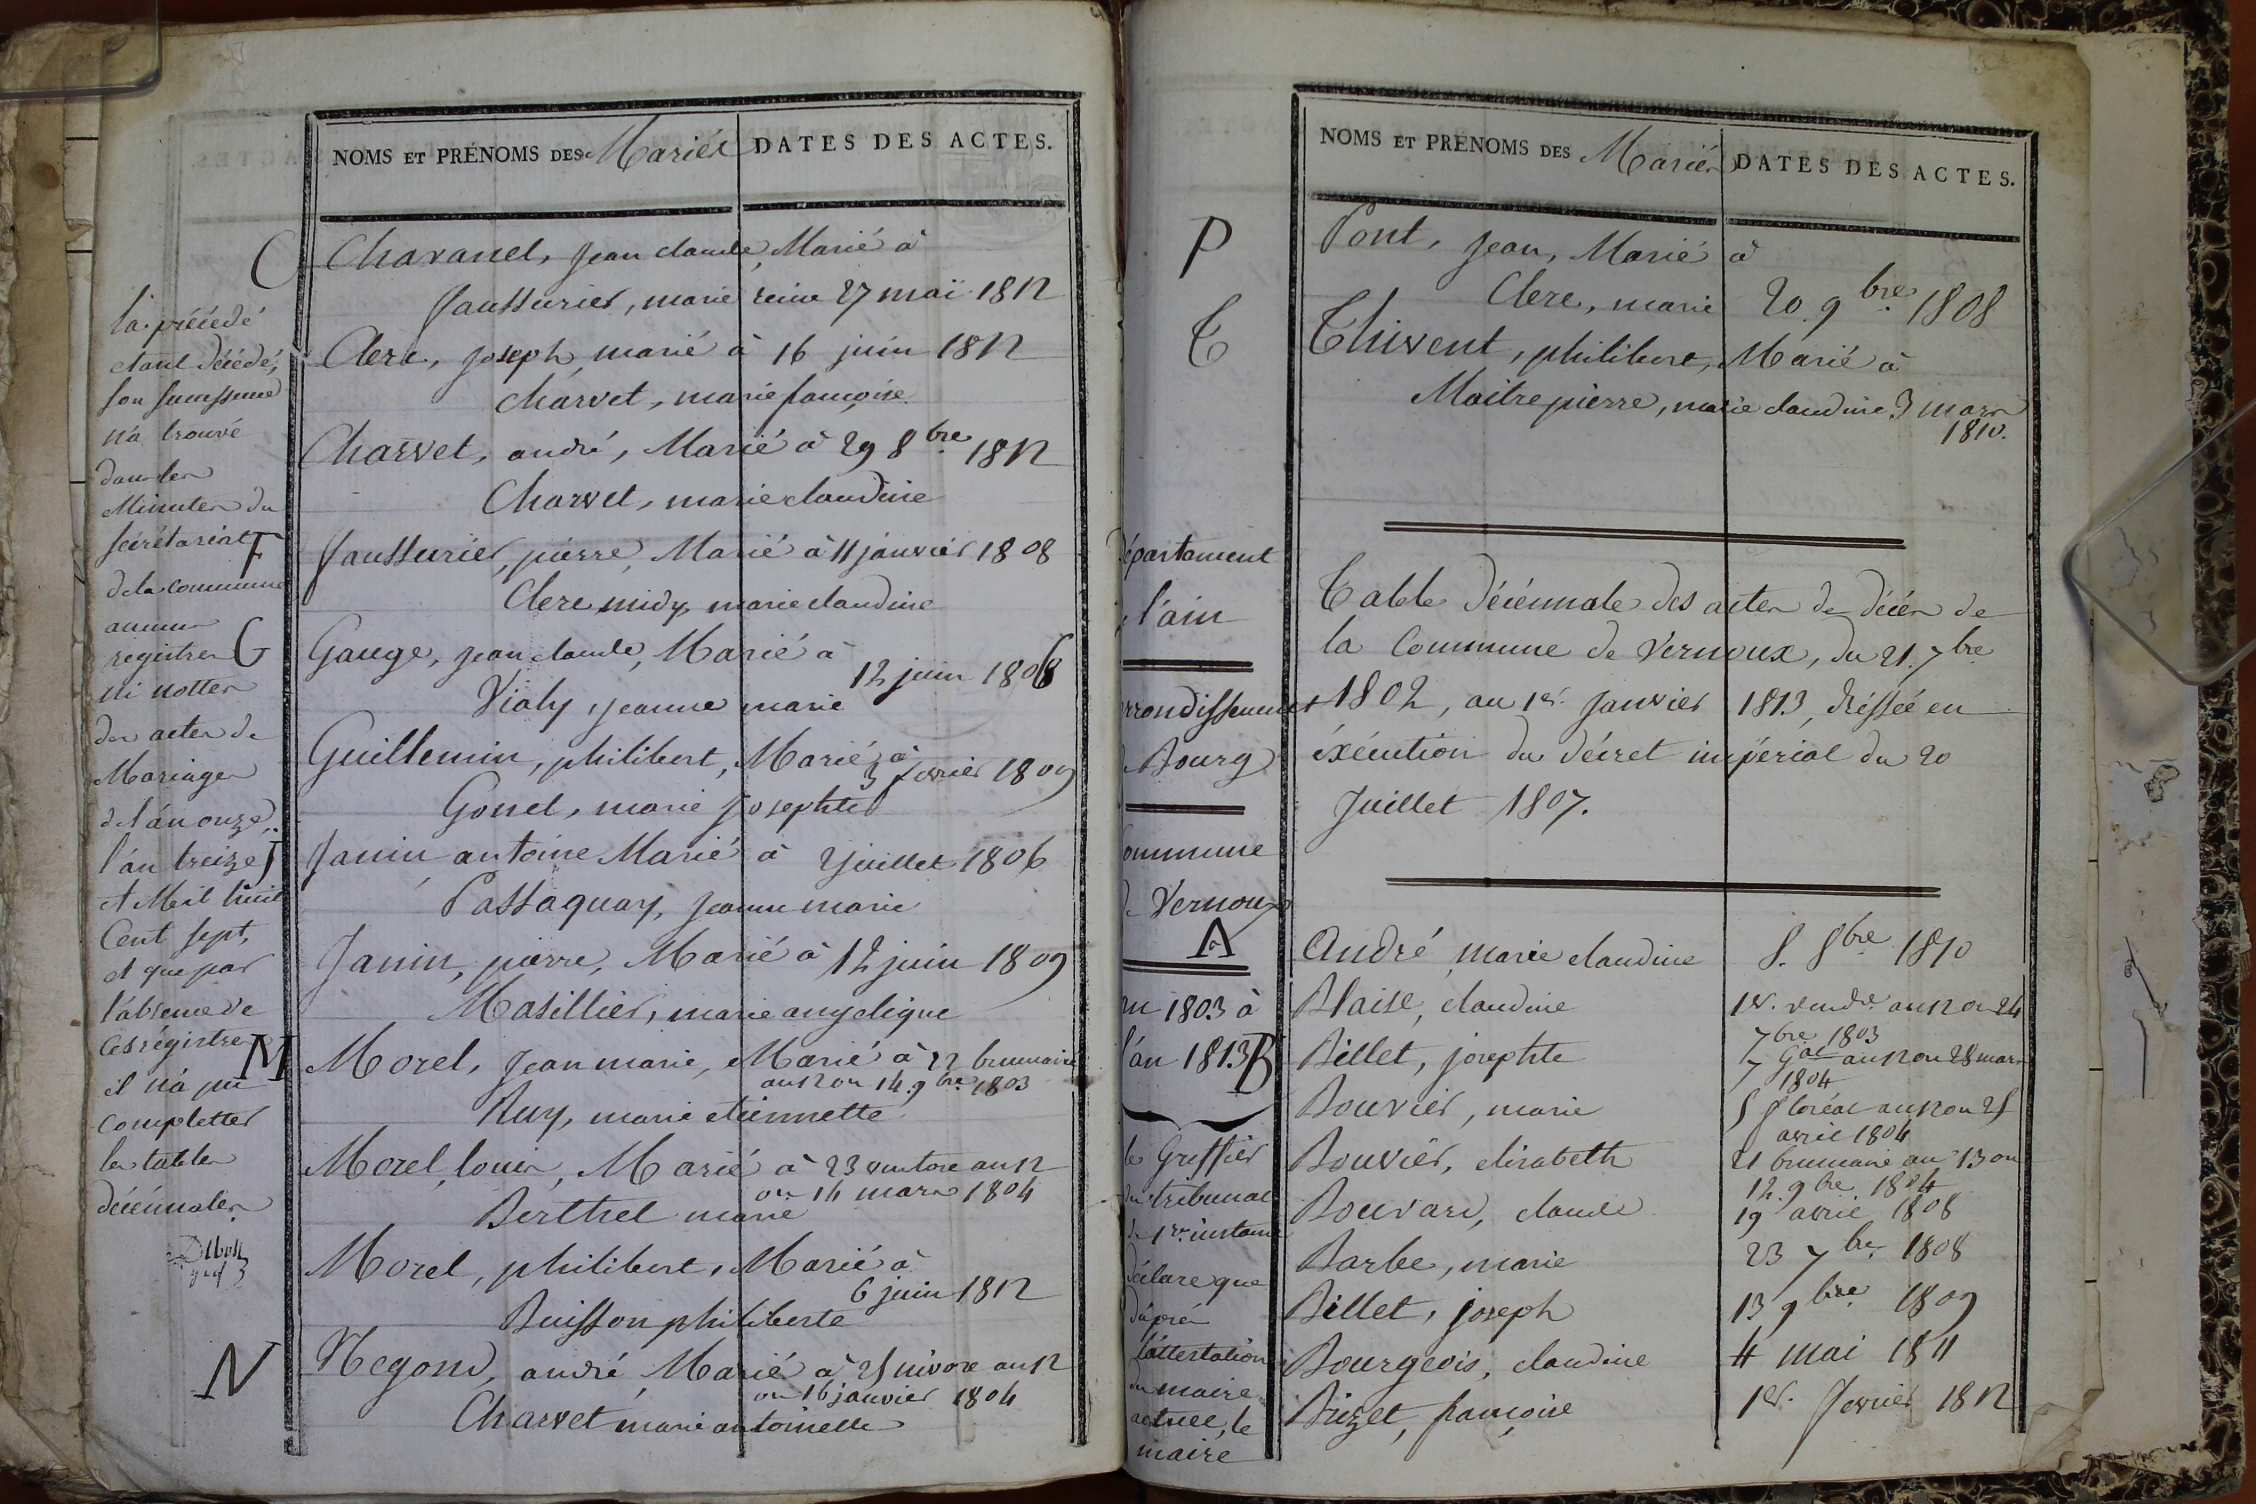 NOMS ET PRÉNOMS DES Mariés DATES DES ACTES.
C
Chavanel, Jean claude, Marié à
faussurier, marie reine 27 mai 1812
Clerc, joseph, marié à 16 juin 1812
charvet, marie françoise
Charvet, andré, Marié à 29 8bre 1812
Charvet, marie claudine
F
faussurier, pierre, Marié à 11 janvier 1808
Clerc midy, marie claudine
G
Gauge, jean claude, Marié à
12 juin 1808
Vialy, jeanne marie
Guillemin, philibert, Marié à
3 fevrier 1809
Gonel, marie josephte
J
Janin antoine Marié à 2 juillet 1806
Passaquay, jeanne marie
Janin, pierre, Marié à 12 juin 1809
Masillier, marie angelique
M
Morel, Jean marie, Marié à 22 brumaire
an 12 ou 14. 9bre 1803
Ruy, marie etiennette
Morel, louis, Marié à 23 ventose an 12
ou 14 mars 1804
Berthet marie
Morel, philibert, Marié à
6 juin 1812
Buisson philiberte
N
Negond, andré Marié à 25 nivose an 12
ou 16 janvier 1804
Charvet marie antoinette
la précédé
etant décédé,
son successeur
n'a trouvé
dans les
Minutes du
secrétariat
de la commune
aucun
registres
ni nottes
des actes de
Mariages
de l'an onze,
l'an treize
et Mil huit
Cent sept,
et que par
l'absence de
ces régistres
il n'a pu
completter
les tables
décénnales
NOMS ET PRÉNOMS DES Mariés DATES DES ACTES.
P
Pont, Jean, Marié à
Clerc, marie 20. 9bre 1808
T
Thivent, philibert, Marié à
Maitrepierre, marie claudine 3 mars
1810.
département
l'ain
arrondissement
Bourg
commune
de Vernoux
Table décénnale des actes de décès de
la Commune de Vernoux, du 21. 7bre
1802, au 1er. Janvier 1813, dréssée en
éxécution du décret impérial du 20
Juillet 1807.
A
André, marie claudine 8. 8bre 1810
an 1803 à
l'an 1813
B
Blaise, claudine 1er. vendre. an 12 ou 24
7bre 1803
Billet, josephte 7 Gal an 12 ou 28 mars
1804
Bouvier, marie 5 floréal an 12 ou 25
avril 1804
Bouvier, elisabeth 21 brumaire an 13 ou
12. 9bre 1804
Bouvard, claude 19 avril 1808
Barbe, marie 23 7bre 1808
Billet, joseph 13 9bre 1809
Bourgeois, claudine 4 mai 1811
Brizet, françoise 1er. fevrier 1812
le Greffier
du tribunal
de 1re instance
déclare que
d'après
l'attestation
du maire
actuel, le
maire